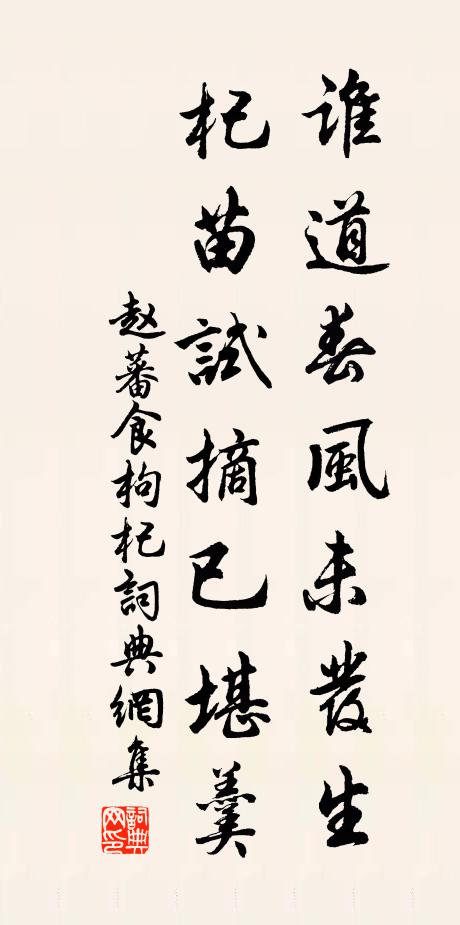 誰道春風未發生
杞苗試摘已堪羹
赵蕃食枸杞詞典網集
詞典網印